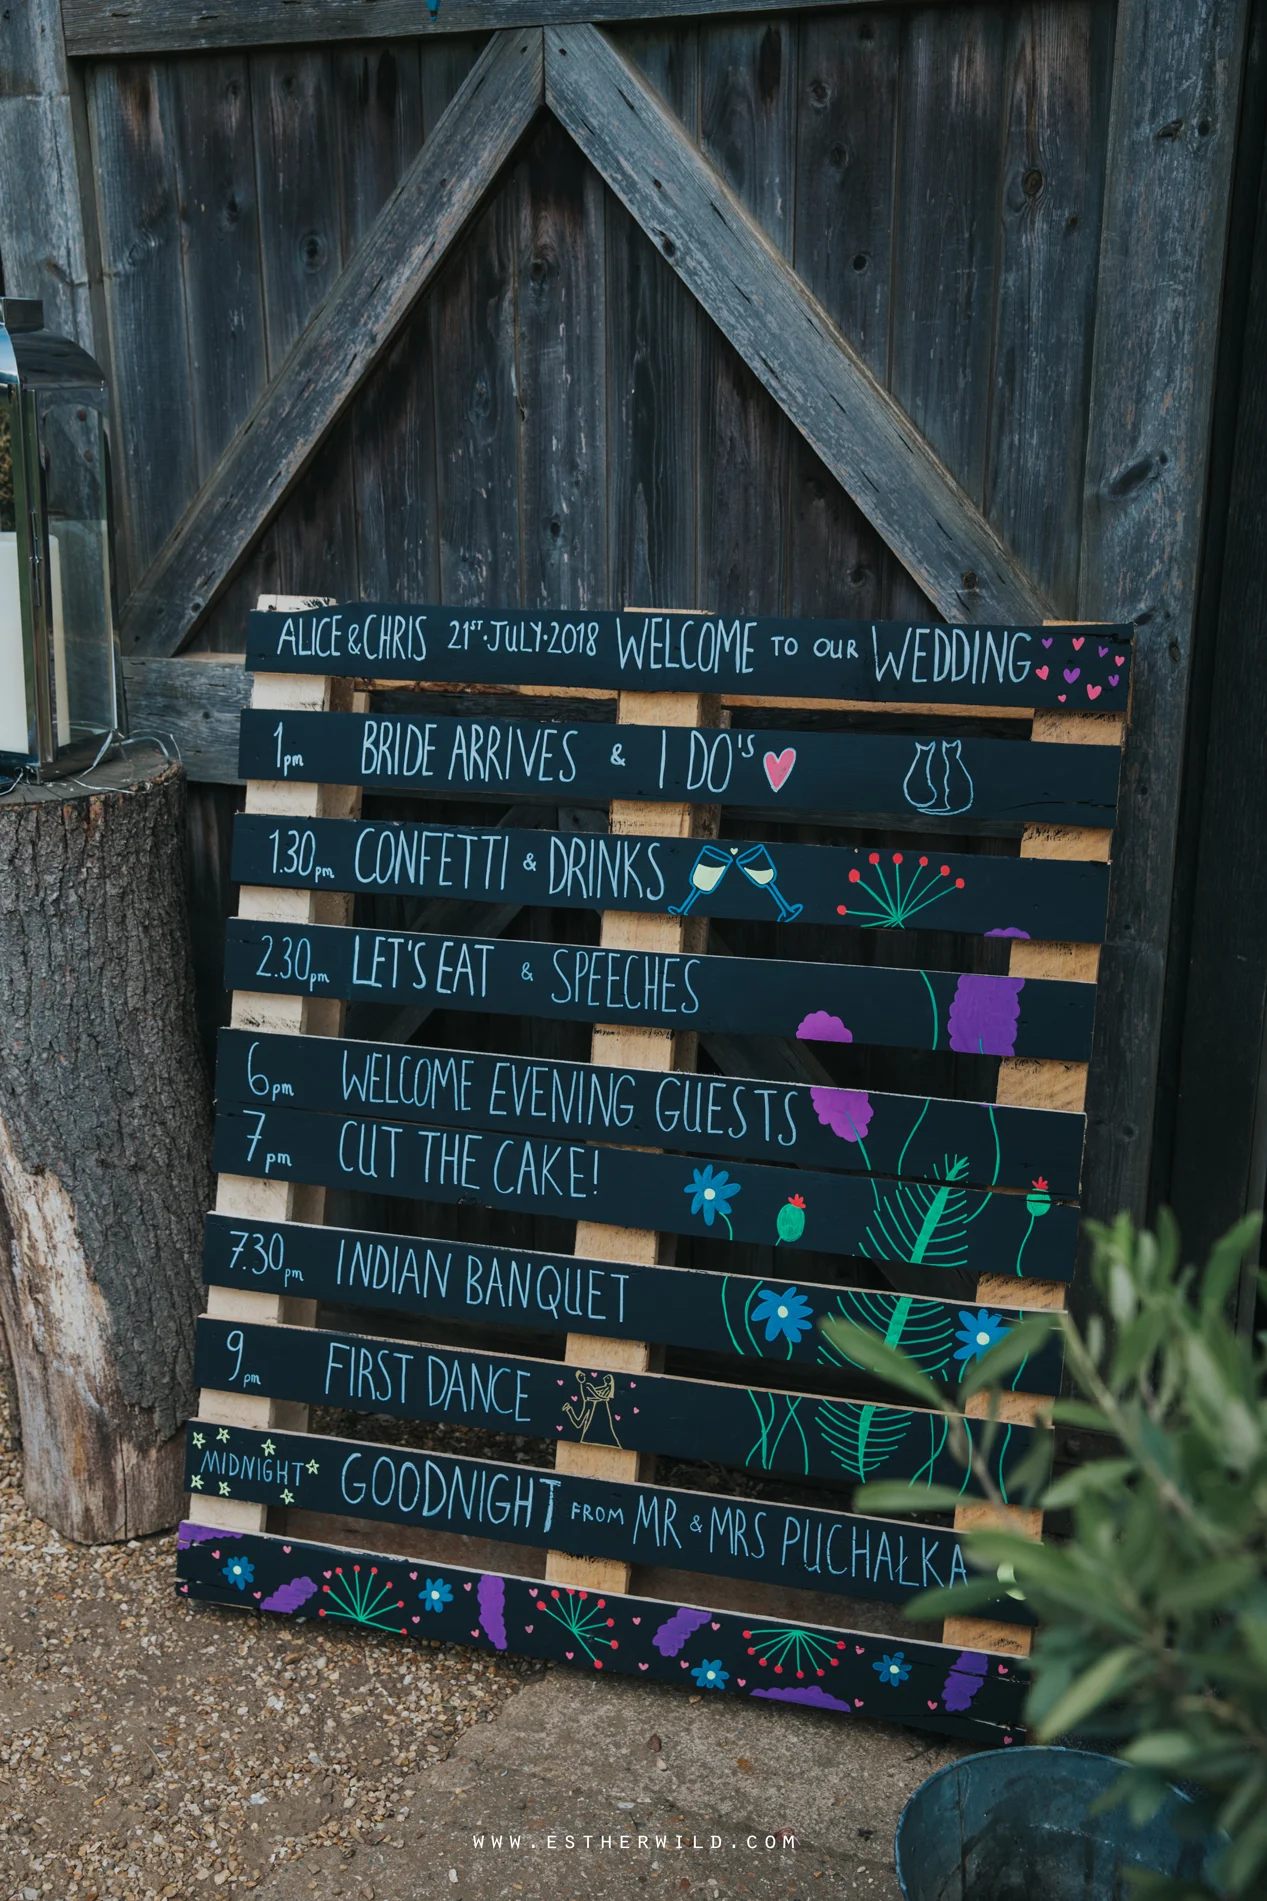 ALICE & CHRIS 21ST·JULY·2018 WELCOME TO OUR WEDDING
1pm BRIDE ARRIVES & I DO'S
1.30pm CONFETTI & DRINKS
2.30pm LET'S EAT & SPEECHES
6pm WELCOME EVENING GUESTS
7pm CUT THE CAKE!
7.30pm INDIAN BANQUET
9pm FIRST DANCE
MIDNIGHT GOODNIGHT FROM MR & MRS PUCHAŁKA
WWW.ESTHERWILD.COM